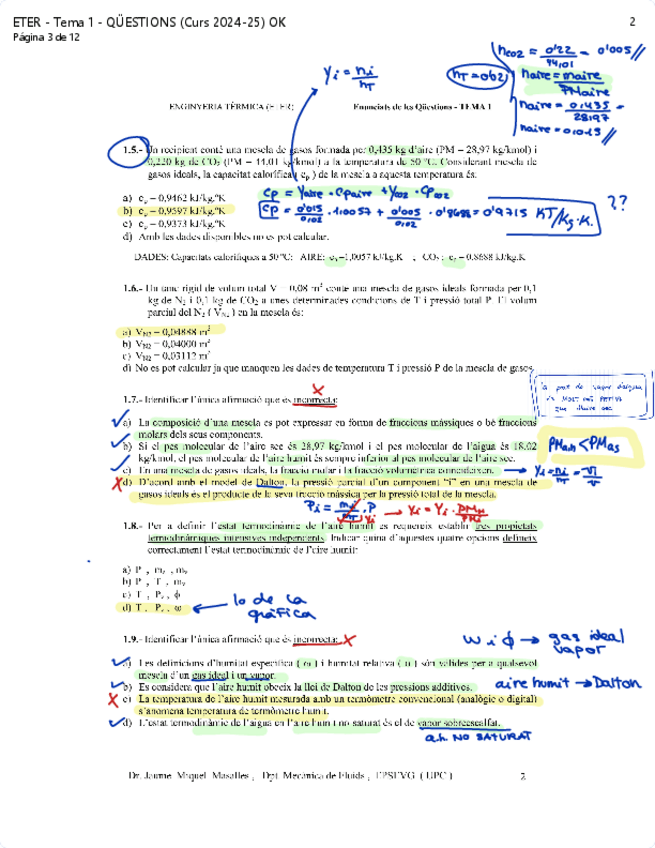 ETER - Tema 1 - QÜESTIONS (Curs 2024-25) OK
2
Página 3 de 12
nco2 = 0'22 / 44,01 = 0'005 //
yi = ni / nT
nT = 0'02
naire = maire / PMaire
naire = 0,0435 / 28,97 =
naire = 0,015 //
ENGINYERIA TÈRMICA (ETER)
Enunciats de les Qüestions - TEMA 1
1.5.- Un recipient conté una mescla de gasos formada per 0,435 kg d'aire (PM = 28,97 kg/kmol) i
0,220 kg de CO2 (PM = 44,01 kg/kmol) a la temperatura de 50 ºC. Considerant mescla de
gasos ideals, la capacitat calorífica ( cp ) de la mescla a aquesta temperatura és:
cp = yaire · cpaire + yco2 · cpco2
a) cp = 0,9462 kJ/kg.ºK
b) cp = 0,9597 kJ/kg.ºK
cp = 0'015 / 0,02 · 1,0057 + 0'005 / 0,02 · 0'8688 = 0'9715 KJ/Kg·K.
??
c) cp = 0,9373 kJ/kg.ºK
d) Amb les dades disponibles no es pot calcular.
DADES: Capacitats calorífiques a 50 ºC: AIRE: cp =1,0057 kJ/kg.K ; CO2 : cp = 0,8688 kJ/kg.K
1.6.- Un tanc rígid de volum total V = 0,08 m3 conté una mescla de gasos ideals formada per 0,1
kg de N2 i 0,1 kg de CO2 a unes determinades condicions de T i pressió total P. El volum
parcial del N2 ( VN2 ) en la mescla és:
a) VN2 = 0,04888 m3
b) VN2 = 0,04000 m3
c) VN2 = 0,03112 m3
d) No es pot calcular ja que manquen les dades de temperatura T i pressió P de la mescla de gasos.
1.7.- Identificar l'única afirmació que és incorrecta:
a) La composició d'una mescla es pot expressar en forma de fraccions màssiques o bé fraccions
molars dels seus components.
b) Si el pes molecular de l'aire sec és 28,97 kg/kmol i el pes molecular de l'aigua és 18,02
kg/kmol, el pes molecular de l'aire humit és sempre inferior al pes molecular de l'aire sec.
PMah < PMas
c) En una mescla de gasos ideals, la fracció molar i la fracció volumètrica coincideixen.
→ yi = ni / nT = Vi / V
d) D'acord amb el model de Dalton, la pressió parcial d'un component "i" en una mescla de
gasos ideals és el producte de la seva fracció màssica per la pressió total de la mescla.
Pi = mi / mT · P → yi = Yi · PMM / PMi
yi
1.8.- Per a definir l'estat termodinàmic de l'aire humit es requereix establir tres propietats
termodinàmiques intensives independents. Indicar quina d'aquestes quatre opcions defineix
correctament l'estat termodinàmic de l'aire humit:
a) P , ma , mv
b) P , T , mv
c) T , Pv , ϕ
d) T , Pv , ω
lo de la
gràfica
1.9.- Identificar l'única afirmació que és incorrecta:
w i ϕ → gas ideal
vapor
a) Les definicions d'humitat específica ( ω ) i humitat relativa ( ϕ ) són vàlides per a qualsevol
mescla d'un gas ideal i un vapor.
b) Es considera que l'aire humit obeeix la llei de Dalton de les pressions additives.
aire humit → Dalton
c) La temperatura de l'aire humit mesurada amb un termòmetre convencional (analògic o digital)
s'anomena temperatura de termòmetre humit.
d) L'estat termodinàmic de l'aigua en l'aire humit no saturat és el de vapor sobreescalfat.
a.h. NO SATURAT
Dr. Jaume Miquel Masalles ; Dpt. Mecànica de Fluids ; EPSEVG ( UPC )
2